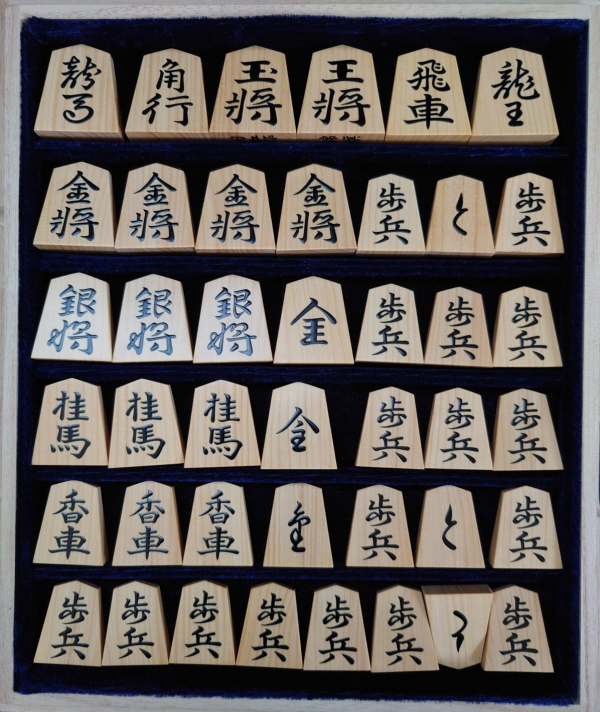 龍馬 角行 玉將 王將 飛車 龍王
金將 金將 金將 金將 歩兵 と 歩兵
銀将 銀将 銀将 全 歩兵 歩兵 歩兵
桂馬 桂馬 桂馬 今 歩兵 歩兵 歩兵
香車 香車 香車 歩兵 と 歩兵
歩兵 歩兵 歩兵 歩兵 歩兵 歩兵 と 歩兵